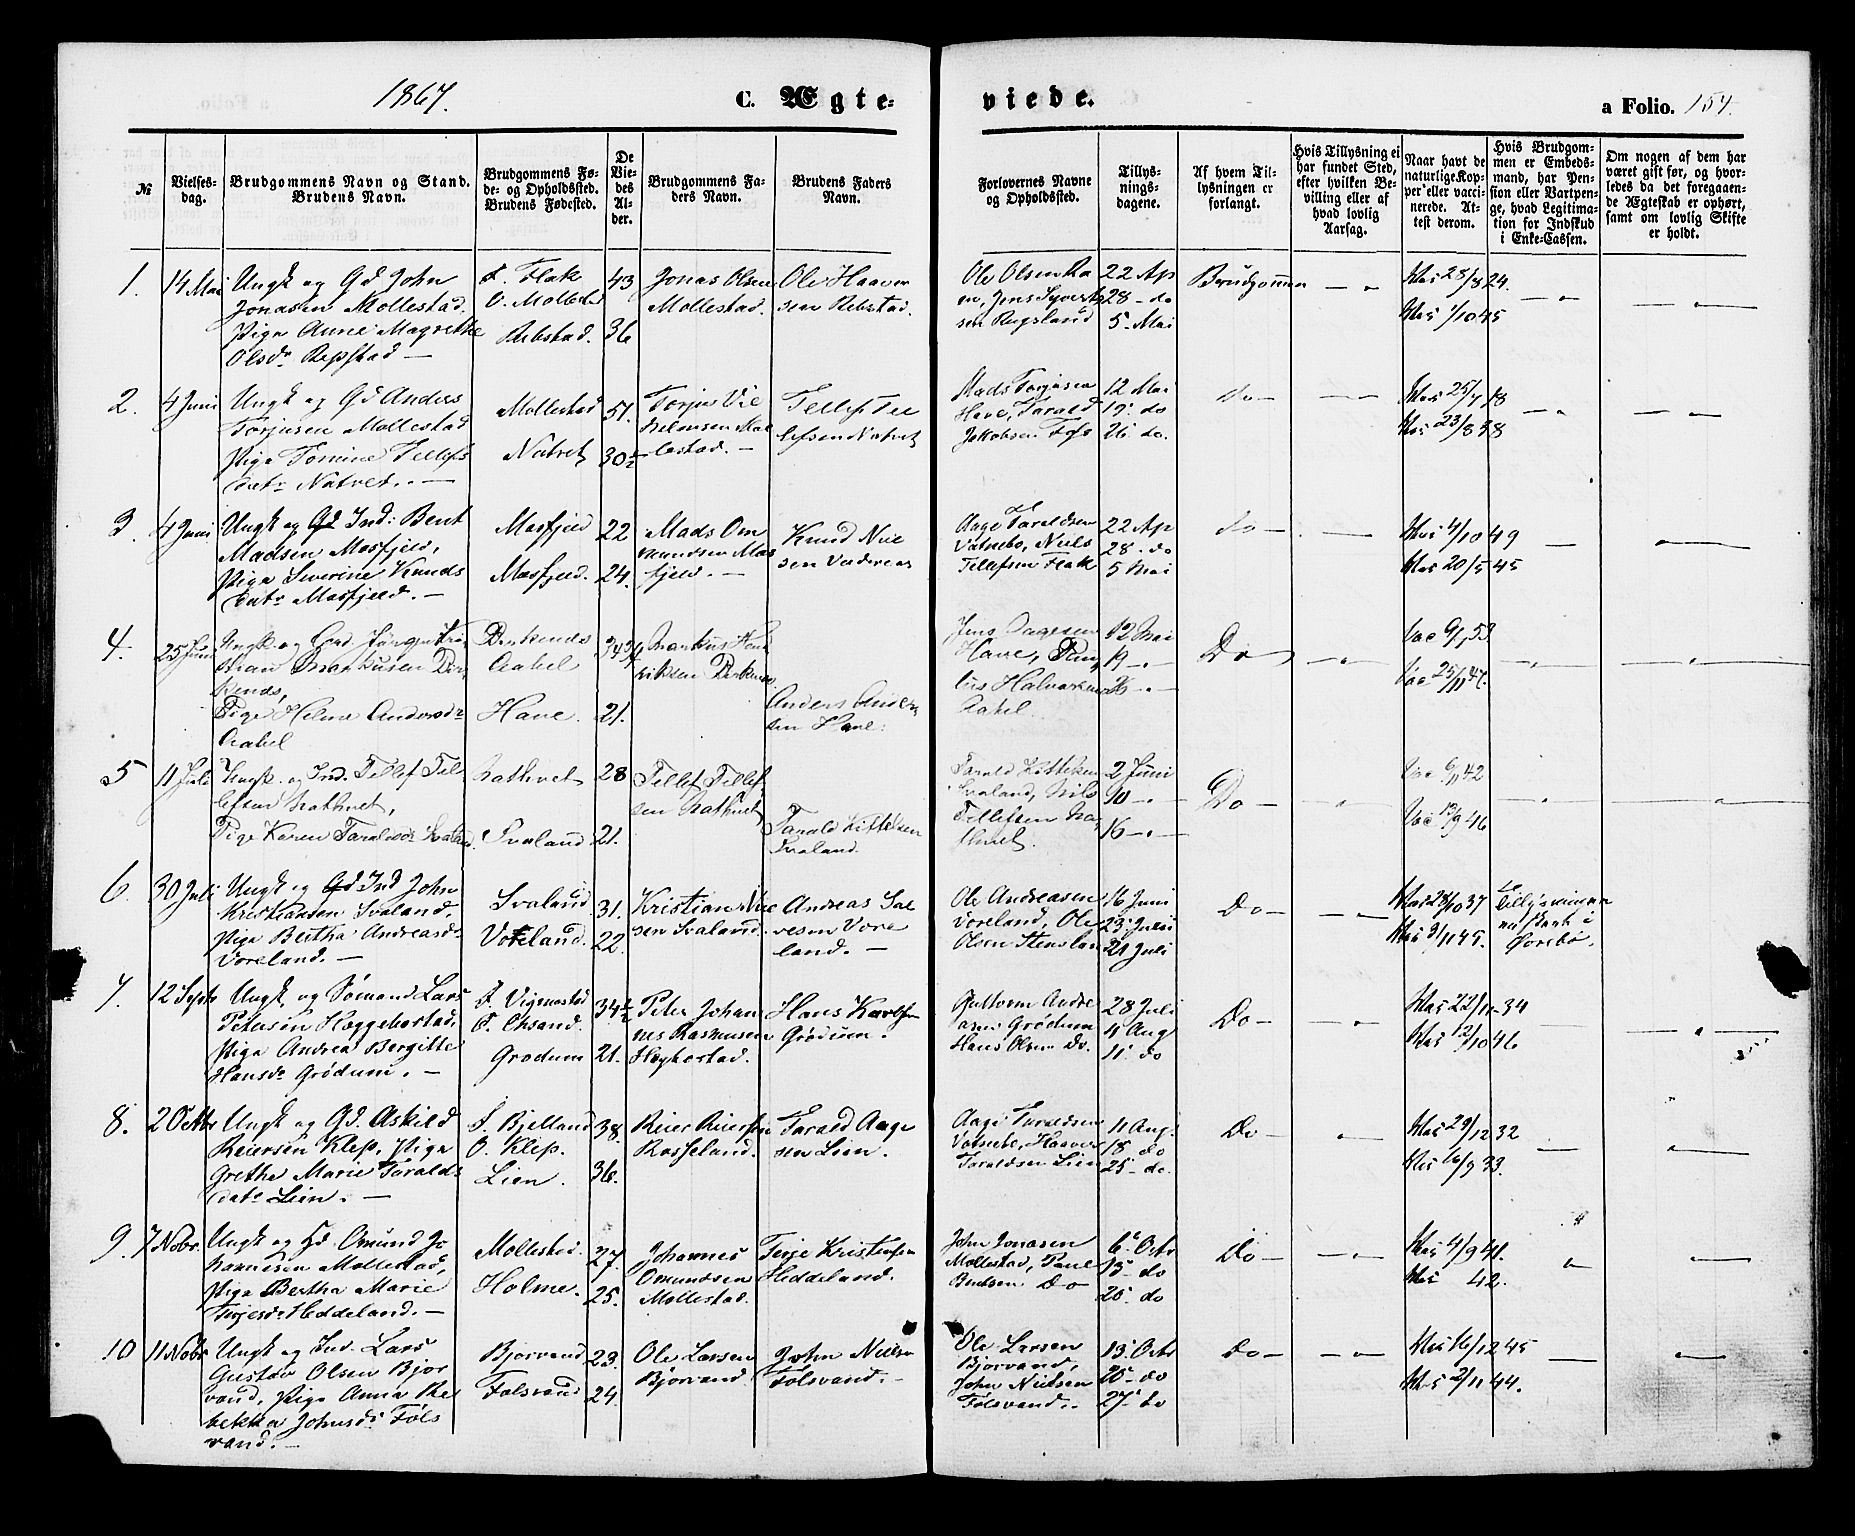 1867.
C. Ægte-
viede.
a Folio. 154.
№
Vielses-
dag.
Brudgommens Navn og Stand.
Brudens Navn.
Brudgommens Fø-
de- og Opholdssted.
Brudens Fødested.
De
Vie-
des
Al-
der.
Brudgommens Fa-
ders Navn.
Brudens Faders
Navn.
Forlovernes Navne
og Opholdssted.
Tillys-
nings-
dagene.
Af hvem Til-
lysningen er
forlangt.
Hvis Tillysning ei
har fundet Sted,
efter hvilken Be-
villing eller af
hvad lovlig
Aarsag.
Naar havt de
naturlige Kop-
per eller vacci-
nerede. At-
test derom.
Hvis Brudgom-
men er Embeds-
mand, har Pen-
sion eller Vartpen-
ge, hvad Legitima-
tion for Indskud
i Enke-Cassen.
Om nogen af dem har
været gift før, og hvor-
ledes da det foregaaen-
de Ægteskab er ophørt,
samt om lovlig Skifte
er holdt.
1.
14 Mai
Ungk og Gd John
Jonasen Mollestad.
Pige Anne Magrethe
Olsdr Repstad —
F. Flak
O. Mollestd
Rebstad.
43
36
Jonas Olsen
Mollestad.
Ole Haavor
sen Rebstad.
Ole Olsen
Jens Syverts
sen Rugsland
22 Ap
28 - do
5. Mai
Brudgommen
28/8 24.
1/10 45
2.
4 Juni
Ungk og Gd Anders
Torjusen Mollestad
Pige Tomine Tellefs
datr Natvet. —
Mollestad
Natvet
51.
30½
Torjus Vil
helmsen Mol
lestad. —
Tellef Tel
lefsen Natvet
Mads Torjusen
Have, Tarald
Jakobsen Fos
12 Mai
19. do
26. do.
do —
25/7 18
23/8 38
3.
4 Juni
Ungk og Gd Ind: Bent
Madsen Mosfjeld,
Pige Severine Knuds
datr Mosfjeld. —
Mosfjeld
Mosfjeld.
22
24.
Mads Om
mundsen Mos
fjeld. —
Knud Niel
sen
Aage Taraldsen
Vatnebo, Niels
Tellefsen Flak
22 Ap
28. do
5 Mai
do —
4/10 49
20/5 45
4.
25 Juni
Ungk. og Jørgen
Markusen
Pige Helene Andersdr
Aabel
Birkenes
Aabel
Have.
21.
Markus Hen
riksen Birkenes
Anders Ander
sen Have.
Jens Aagesen
Have,
Halvorsen
Aabel.
12 Mai
19 -.-
26 -.-
Do
Vac 53.
Vac 25/11 47.
5
11 Juli
Ungk. og Ind. Tellef Tel-
lefsen Nathvet,
Pige Karen Taraldsdr Svaland.
Nathvet
Svaland
28
21.
Tellef Tellef
sen Nathvet
Tarald Kittelsen
Svaland.
Tarald Kittelsen
Svaland, Nils
Tellefsen Na-
thvet.
2 Juni
10 -.-
16 -.-
Do —
Vac 6/11 42
Vac 12/9 46
6.
30 Juli
Ungk og Gd Ind John
Kristiansen Svaland.
Pige Bertha Andreasdr
Voreland. —
Svaland
Voreland.
31.
22.
Kristian Niel
sen Svaland.
Andreas Sal
vesen Vore
land. —
Ole Andreasen
Voreland, Ole
Olsen Stenslan
16 Juni
23 Juli
21 Juli
Do —
10 37
9/11 45.
Tillysningen
i
Øvrebø.
7.
12 Septr
Ungk. og Sømand Lars
Petersen Heggebostad.
Pige Andrea Bergitte
Hansdr Grødum. —
F. Vigmostad
O. Chsand.
Grødum
34½
21.
Peter Johan
nes Rasmussen
Hegbostad.
Hans Karlsen
Grødum.
Guttorm Andre
asen Grødum
Hans Olsen do.
28 Juli
4 Aug
11. do
Do —
22/11 34
12/10 46
8.
2 Octbr
Ungk og Gd. Askild
Reiersen Klep, Pige
Grethe Marie Taralds
datr Lien. —
F. Bjelland
O. Klep.
Lien.
38.
36.
Reier Reiersen
Rosseland.
Tarald Aage
sen Lien.
Aage Taraldsen
Vatnebo, Haavor
Taraldsen Lien
11 Aug.
18 do
25 - do.
Do —
29/12 32
16/9 33.
9.
7 Nobr.
Ungk og Gd. Omund Jo
hannesen Mollestad,
Pige Bertha Marie
Terjesdr Heddeland. —
Mollestad.
Holme.
27.
25.
Johannes
Omundsen
Mollestad.
Terje Kristensen
Heddeland.
John Jonasen
Mollestad, Paul
Do
6. Octr
13 - do
20. do
Do —
4/9 41.
42.
10
11 Nobr
Ungk og Ind. Lars
Gustav Olsen Bjor
vand, Pige Anna Re
bekka Johnsdr Føls
vand. —
Bjorvand
Følsvand
23.
24.
Ole Larsen
Bjorvand.
John Nielsen
Følsvand. —
Ole Larsen
Bjorvand,
John Nielsen
Følsvand.
13. Octr
20 - do
27. do
Do —
16/12 45
2/11 44.